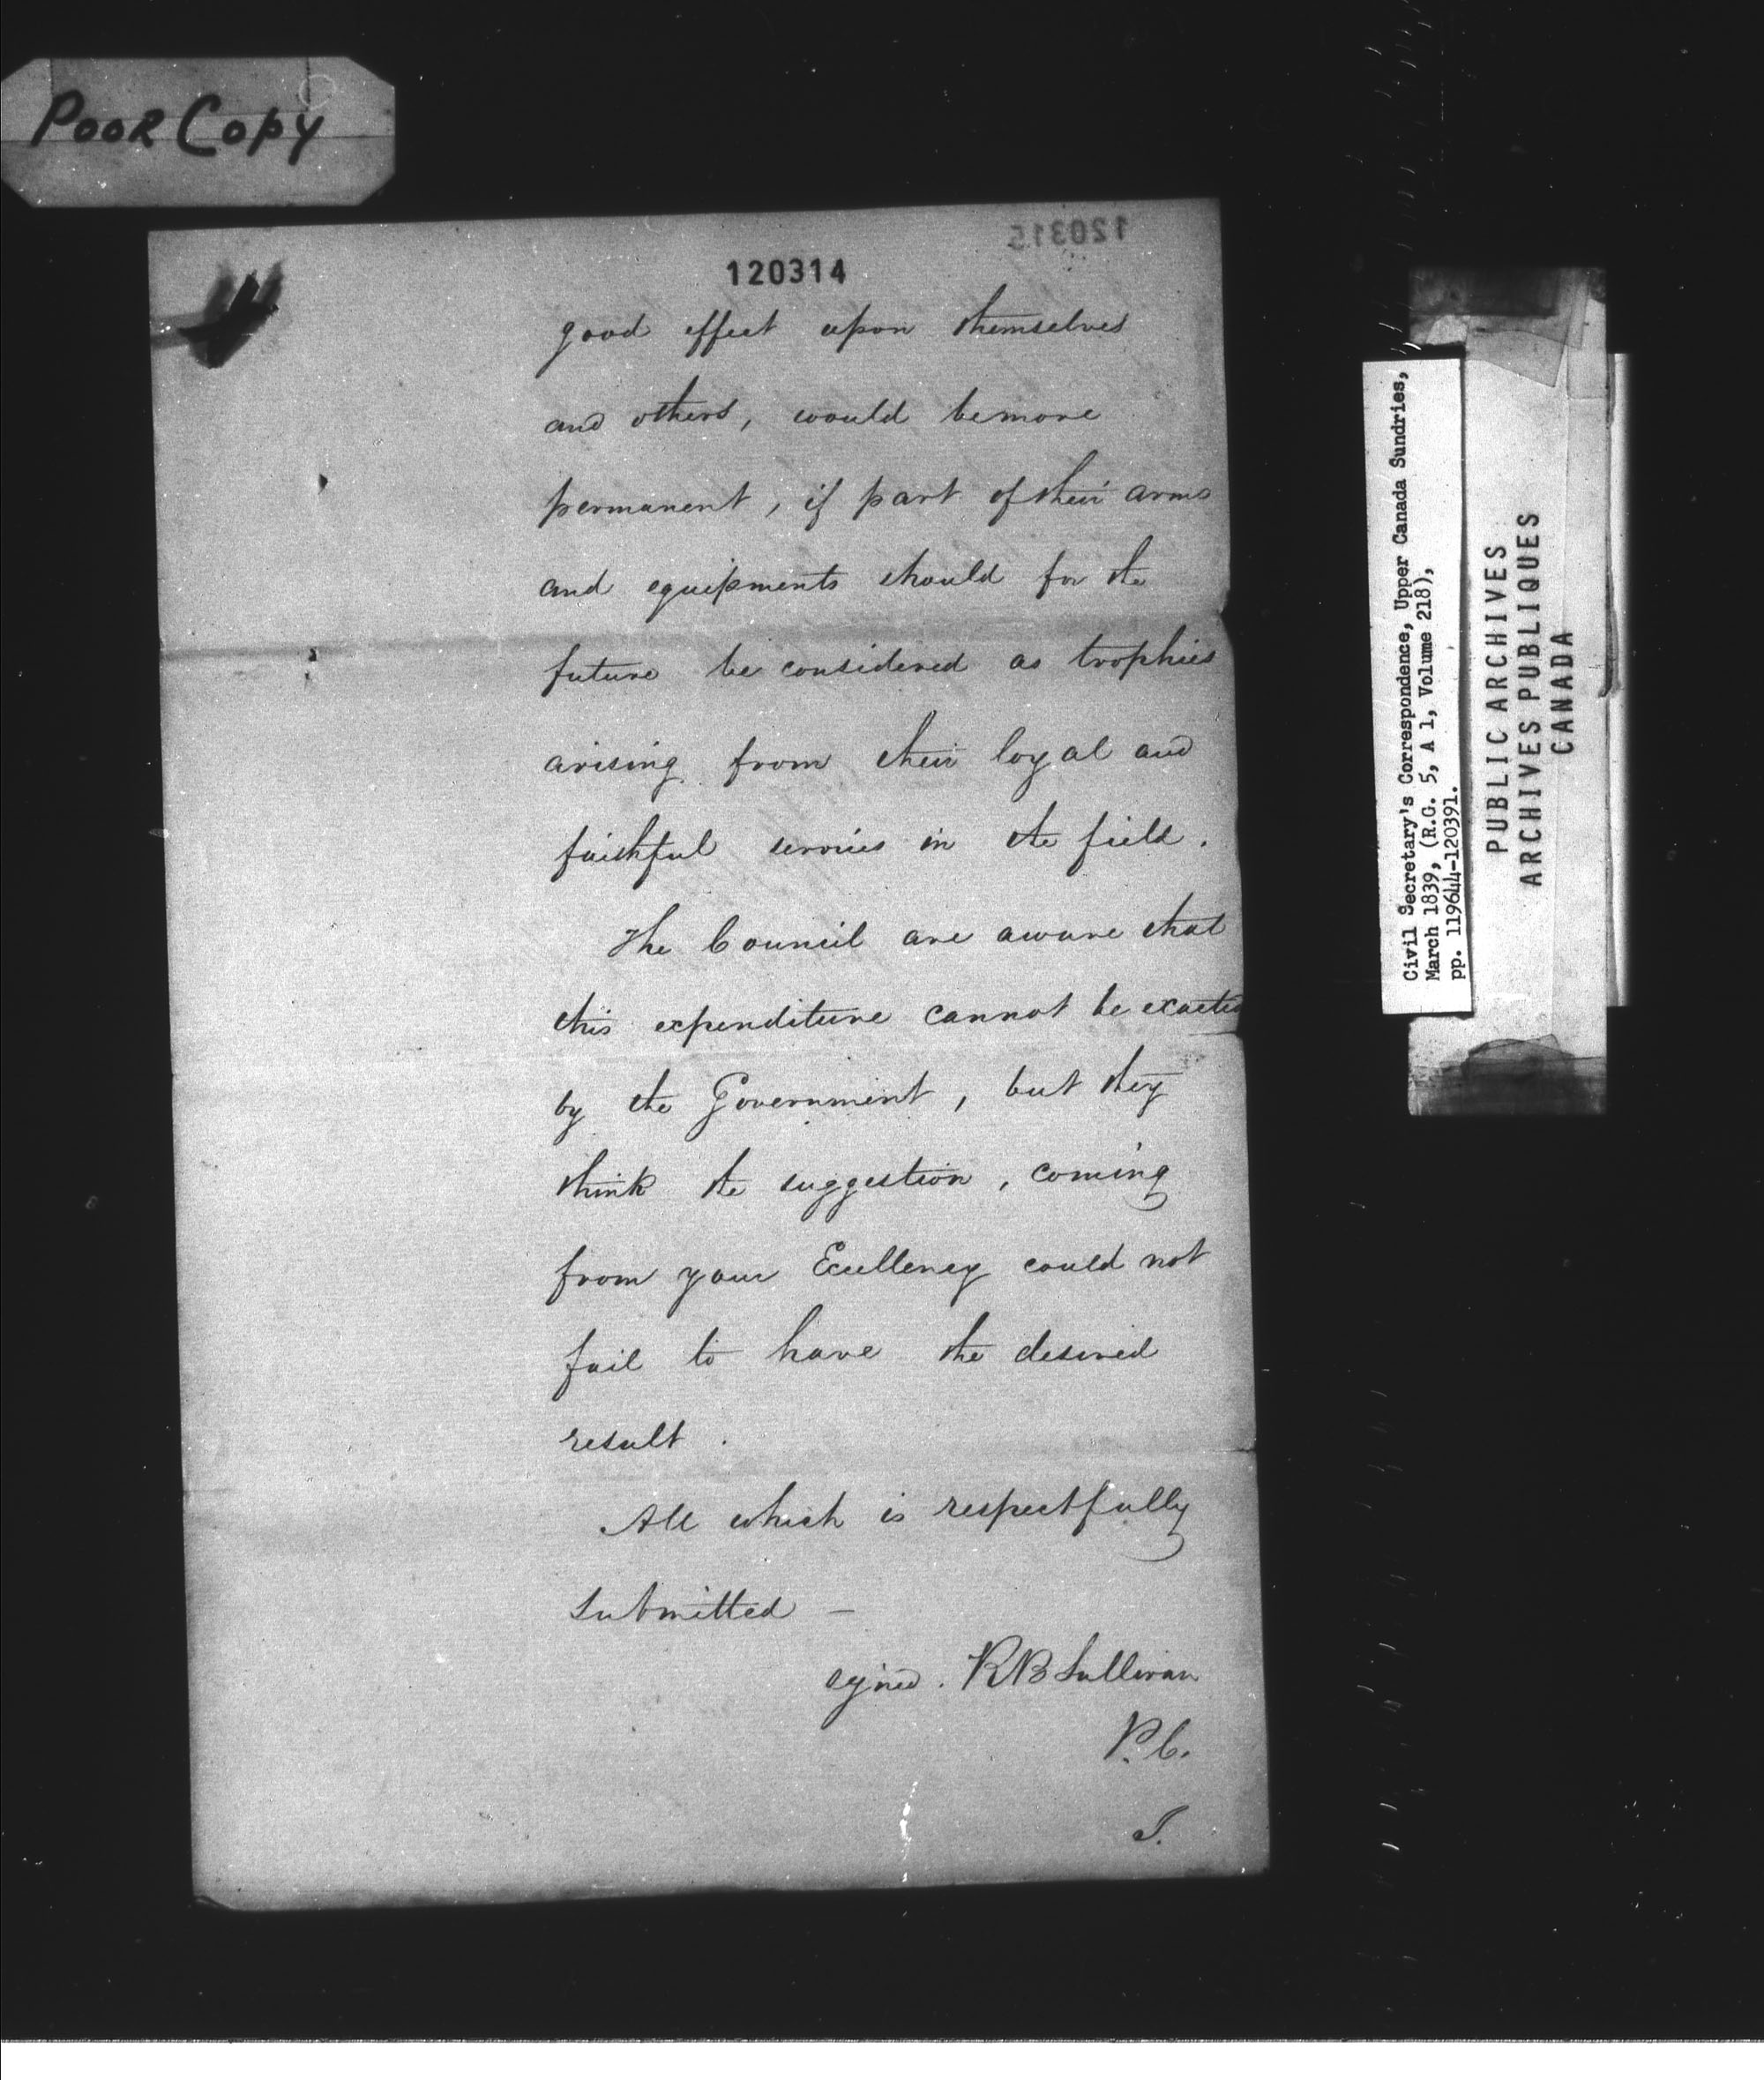 Poor Copy
120315
120314
good effect upon themselves
and others, would be more
permanent, if part of their arms
and equipments should for the
future be considered as trophies
arising from their loyal and
faithful services in the field.
The Council are aware that
this expenditure cannot be exacted
by the Government, but they
think the suggestion, coming
from your Excellency could not
fail to have the desired
result.
All which is respectfully
submitted —
signed. RB Sullivan
P.C.
Civil Secretary's Correspondence, Upper Canada Sundries,
March 1839, (R.G. 5, A 1, Volume 218),
pp. 119644-120391.
PUBLIC ARCHIVES
ARCHIVES PUBLIQUES
CANADA